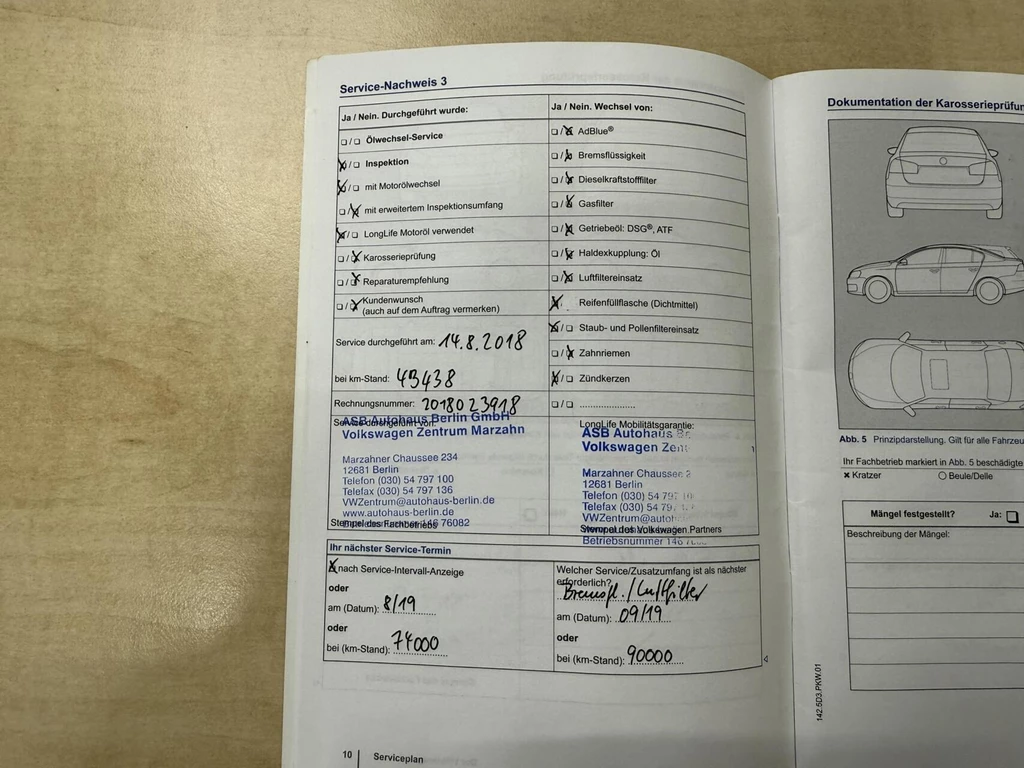 Service-Nachweis 3
Ja / Nein. Durchgeführt wurde:
□/□ Ölwechsel-Service
☒/□ Inspektion
☒/□ mit Motorölwechsel
□/☒ mit erweitertem Inspektionsumfang
☒/□ LongLife Motoröl verwendet
□/☒ Karosserieprüfung
□/☒ Reparaturempfehlung
□/☒ Kundenwunsch
(auch auf dem Auftrag vermerken)
Service durchgeführt am: 14.8.2018
bei km-Stand: 43438
Rechnungsnummer: 2018023918
Service durchgeführt von:
ASB Autohaus Berlin GmbH
Volkswagen Zentrum Marzahn
Marzahner Chaussee 234
12681 Berlin
Telefon (030) 54 797 100
Telefax (030) 54 797 136
VWZentrum@autohaus-berlin.de
www.autohaus-berlin.de
Stempel des Fachbetriebs
146 76082
Ja / Nein. Wechsel von:
□/☒ AdBlue®
□/☒ Bremsflüssigkeit
□/☒ Dieselkraftstofffilter
□/☒ Gasfilter
□/☒ Getriebeöl: DSG®, ATF
□/☒ Haldexkupplung: Öl
□/☒ Luftfiltereinsatz
☒ Reifenfüllflasche (Dichtmittel)
☒/□ Staub- und Pollenfiltereinsatz
□/☒ Zahnriemen
☒/□ Zündkerzen
□/□ ......................
LongLife Mobilitätsgarantie:
ASB Autohaus
Volkswagen
Marzahner Chaussee
12681 Berlin
Telefon (030) 54
Telefax (030) 54
VWZentrum@autoh
Stempel des Volkswagen Partners
Betriebsnummer 146
Ihr nächster Service-Termin
☒ nach Service-Intervall-Anzeige
oder
am (Datum): 8/19
oder
bei (km-Stand): 74000
Welcher Service/Zusatzumfang ist als nächster
erforderlich?
Bremsfl./Luftfilter
am (Datum): 09/19
oder
bei (km-Stand): 90000
10 | Serviceplan
Dokumentation der Karosserieprüfun
Abb. 5 Prinzipdarstellung. Gilt für alle Fahrzeu
Ihr Fachbetrieb markiert in Abb. 5 beschädigte
✖ Kratzer ○ Beule/Delle
Mängel festgestellt? Ja: □
Beschreibung der Mängel:
142.5D3.PKW.01